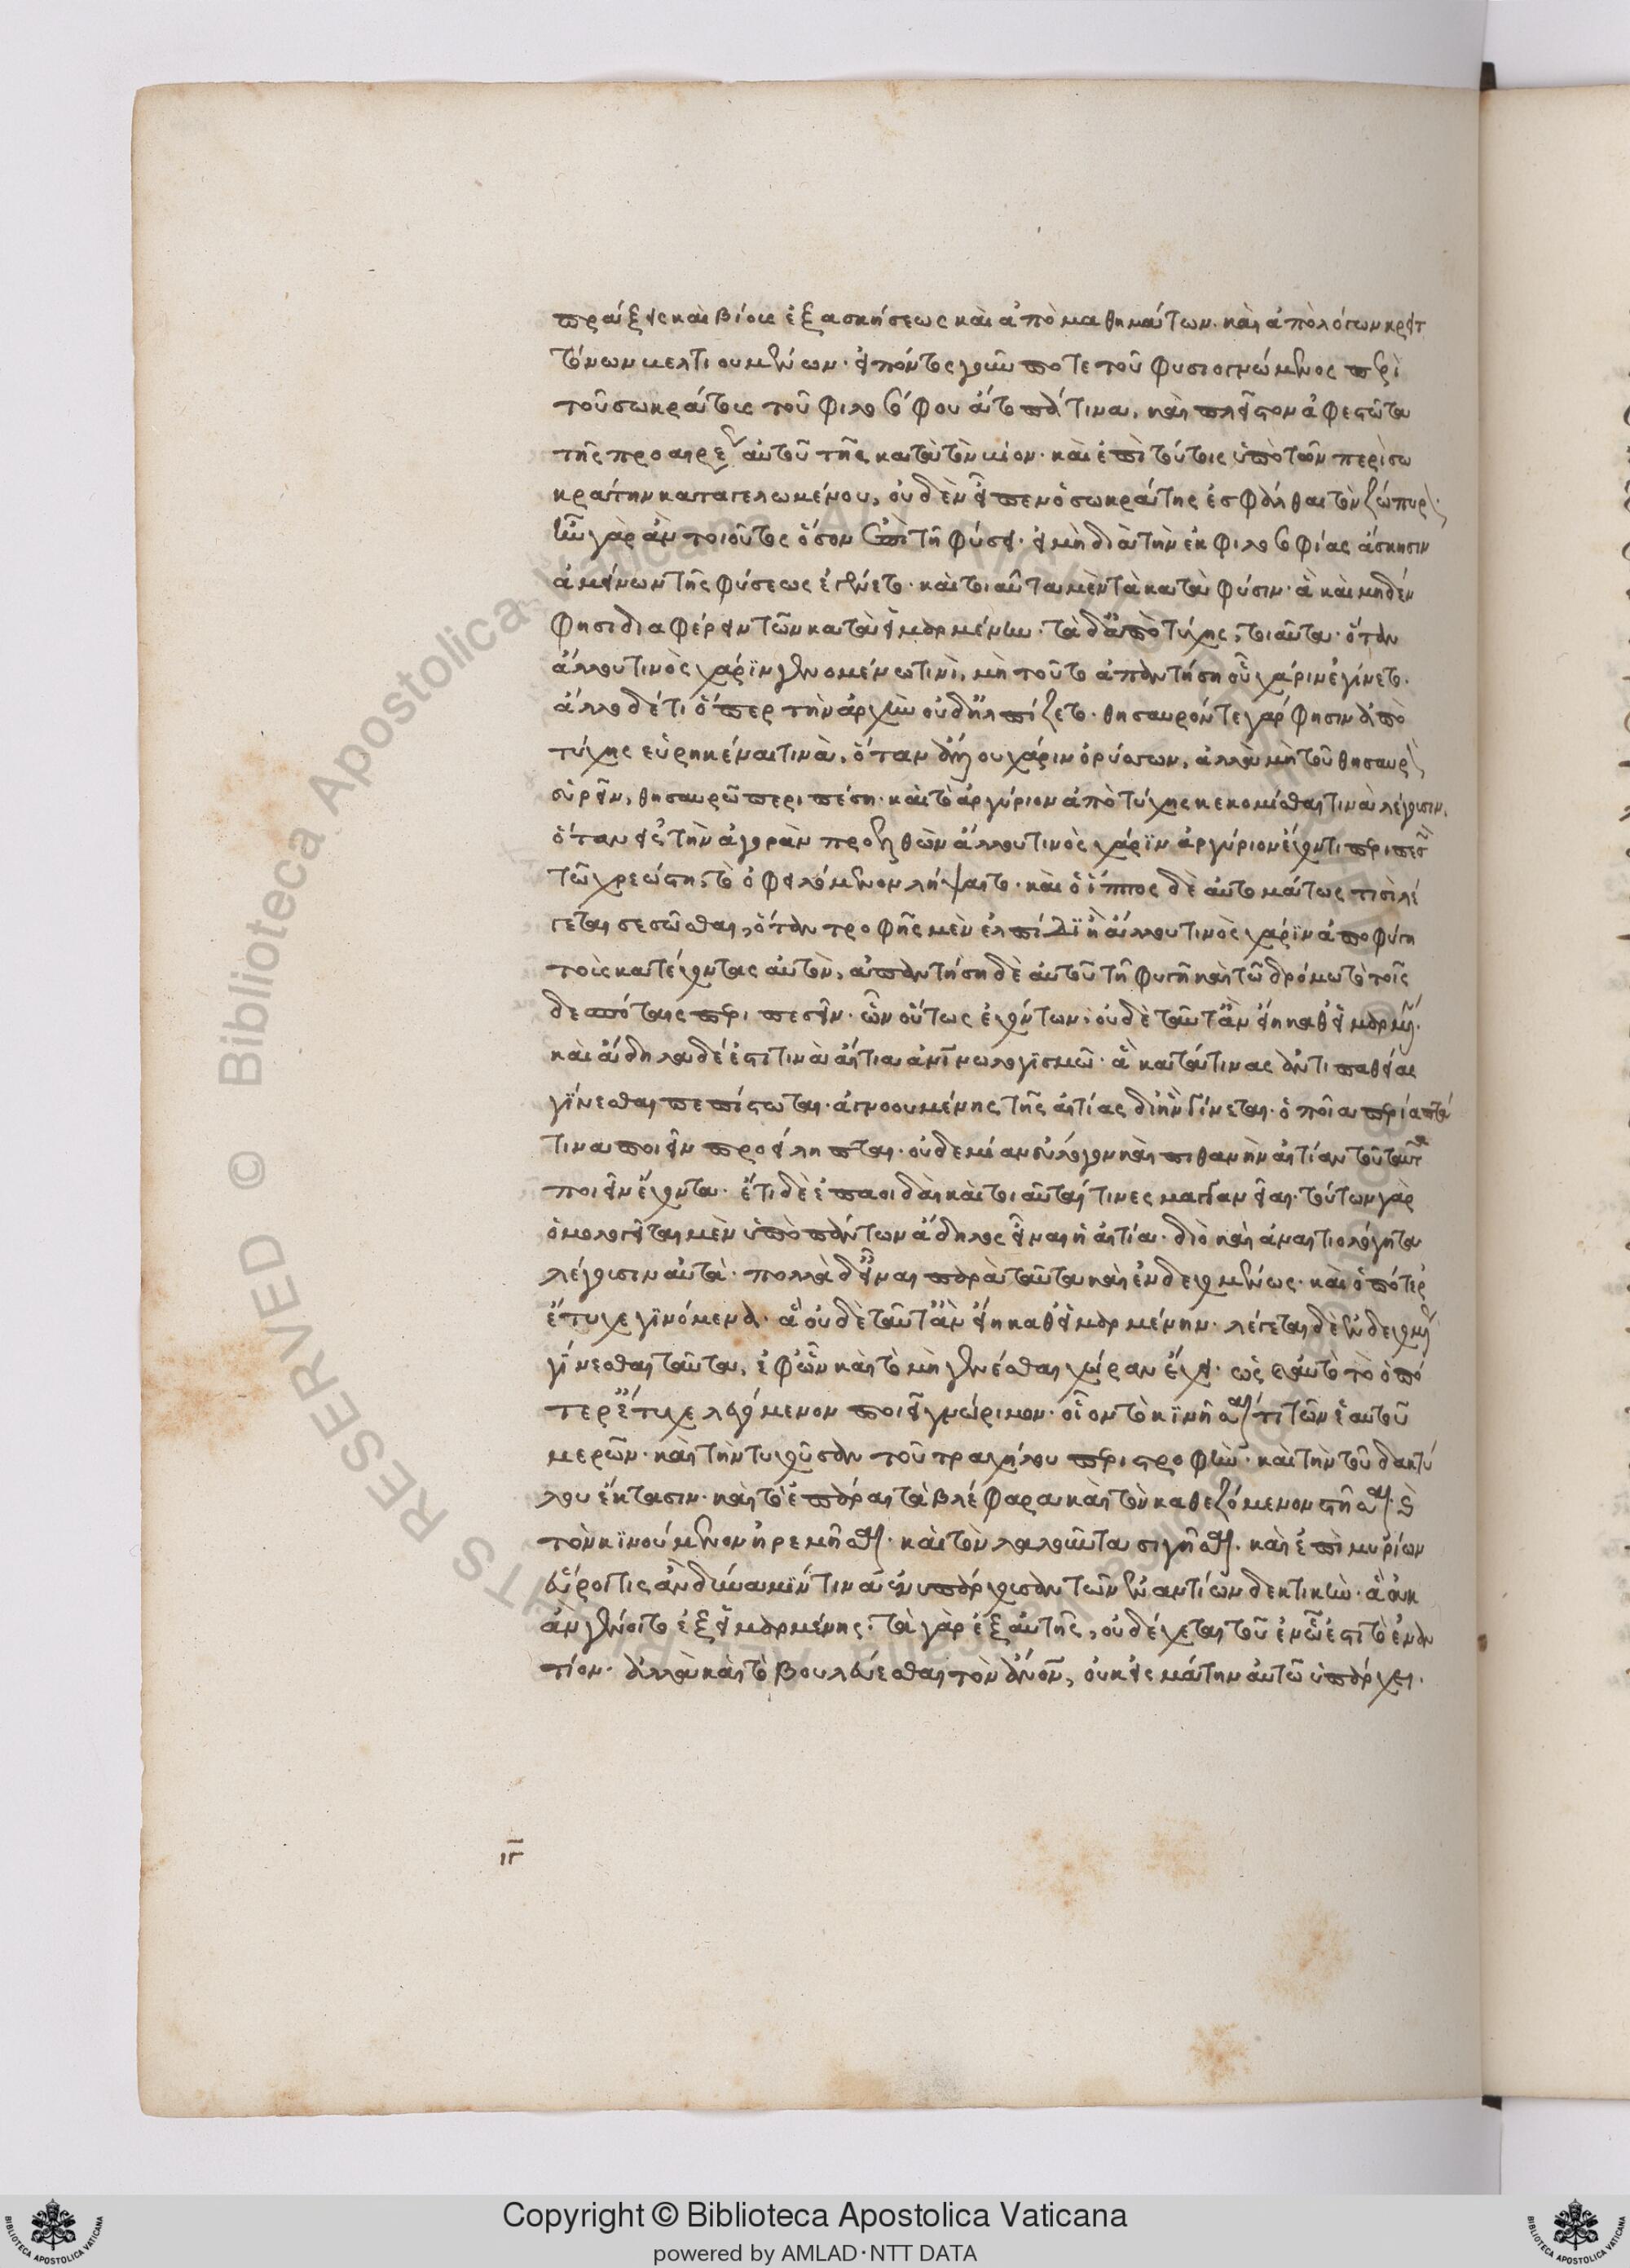 πράξεις καὶ βίους ἐξ ἀσκήσεως καὶ ἀπὸ μαθημάτων. καὶ ἀπὸ λόγων κρειτ
τόνων βελτιουμένων. εἰπόντος γοῦν ποτε τοῦ φυσιογνώμονος περὶ
τοῦ σωκράτους τοῦ φιλοσόφου ἄτοπά τινα, καὶ πλεῖστον ἀφεστῶτα
τῆς προαιρέσεως αὐτοῦ τῆς κατὰ τὸν βίον. καὶ ἐπὶ τούτοις ὑπὸ τῶν περὶ σω
κράτην καταγελωμένου, οὐδὲν εἶπεν ὁ σωκράτης ἐσφάλθαι τὸν ζώπυρον.
ἦν γὰρ ἂν τοιοῦτος ὅσον ἐπὶ τῇ φύσει. εἰ μὴ διὰ τὴν ἐκ φιλοσοφίας ἄσκησιν
ἀμείνων τῆς φύσεως ἐγένετο. καὶ τοιαῦτα μὲν τὰ κατὰ φύσιν. ἃ καὶ μηδέν
φησι διαφέρειν τῶν καθ' εἱμαρμένην. τὰ δ' ἀπὸ τύχης, τοιαῦτα. ὅταν
ἄλλου τινὸς χάριν γενομένω τινὶ, μὴ τοῦτο ἀπαντήση οὗ χάριν ἐγίνετο.
ἀλλὸ δέ τι ὅπερ τὴν ἀρχὴν οὐδ' ἤλπίζετο. θησαυρόν τε γάρ φησιν ἀπὸ
τύχης εὑρηκέναι τινὰ, ὅταν ἄλλου χάριν ὀρύσσων, ἀλλὰ μὴ τοῦ θησαυρὸν
εὑρεῖν, θησαυρῶ περιπέση. καὶ τὸ ἀργύριον ἀπὸ τύχης κεκομίσθαι τινὰ λέγουσιν,
ὅταν εἰς τὴν ἀγορὰν προελθὼν ἄλλου τινὸς χάριν ἀργύριον ἔχοντι περιπεσὼν
τῶ χρεώστη, τὸ ὀφειλόμενον λήψαιτο. καὶ ὁ ἵππος δὲ αὐτομάτως τισὶ λέ
γεται σεσῶσθαι, ὅταν τροφῆς μὲν ἐλπίδι ἢ ἄλλου τινὸς χάριν ἀποφύγη
τοὺς κατέχοντας αὐτὸν, ἀπαντήση δὲ αὐτοῦ τῆ φυγῆ καὶ τῶ δρόμω τὸ τοῖς
δεσπόταις περιπεσεῖν. ὧν οὕτως ἐχόντων, οὐδὲ ταῦτ' ἂν εἴη καθ' εἱμαρμένην.
καὶ ἄδηλα δέ ἐστι τινὰ αἴτια ἀνθρωπίνω λογισμῶ. ἃ κατά τινας ἀντιπαθείας
γίνεσθαι πεπίστωται. ἀγνοουμένης τῆς αἰτίας δι' ἣν γίνεται. ὁποῖα περίαπτά
τινα ποιεῖν προείληπται. οὐδεμίαν εὔλογον καὶ πιθανὴν αἰτίαν τοῦ ταῦτα
ποιεῖν ἔχοντα. ἔτι δὲ ἐπαοιδαὶ καὶ τοιαῦταί τινες μαγγανεῖαι. τούτων γὰρ
ὁμολογεῖται μὲν ὑπὸ πάντων ἄδηλος εἶναι ἡ αἰτία. διὸ καὶ ἀναιτιολόγητα
λέγουσιν αὐτά. πολλὰ δ' εἶναι παρὰ ταῦτα καὶ ἐνδεχομένως. καὶ ὁπότερ'
ἔτυχε γινόμενα. ἃ οὐδὲ ταῦτ' ἂν εἴη καθ' εἱμαρμένην. λέγεται δὲ ἐνδεχομένως
γίνεσθαι ταῦτα, ἐφ' ὧν καὶ τὸ μὴ γενέσθαι χώραν ἔχει. ὡς καὶ αὐτὸ τὸ ὁπό
τερ' ἔτυχε λεγόμενον ποιεῖ γνώριμον. οἷον τὸ κινῆσαί τι τῶν ἑαυτοῦ
μερῶν. καὶ τὴν τυχοῦσαν τοῦ τραχήλου περιστροφὴν. καὶ τὴν τοῦ δακτύ
λου ἔκτασιν. καὶ τὸ ἐπᾶραι τὰ βλέφαρα καὶ τὸν καθεζόμενον στῆσαι. καὶ
τὸν κινούμενον ἠρεμῆσαι. καὶ τὸν λαλοῦντα σιγῆσαι. καὶ ἐπὶ μυρίων
εὕροι τις ἂν δύναμίν τινα ἐνυπάρχουσαν τῶν ἐναντίων δεκτικὴν. ἃ οὐκ
ἂν γένοιτο ἐξ εἱμαρμένης. τὰ γὰρ ἐξ αὐτῆς, οὐ δέχεται τοῦ ἐν ὧ ἐστι τὸ ἐναν
τίον. ἀλλὰ καὶ τὸ βουλεύεσθαι τὸν ἄνθρωπον, οὐκ εἰς μάτην αὐτῶ ὑπάρχει.
ιγ
Copyright © Biblioteca Apostolica Vaticana
powered by AMLAD·NTT DATA